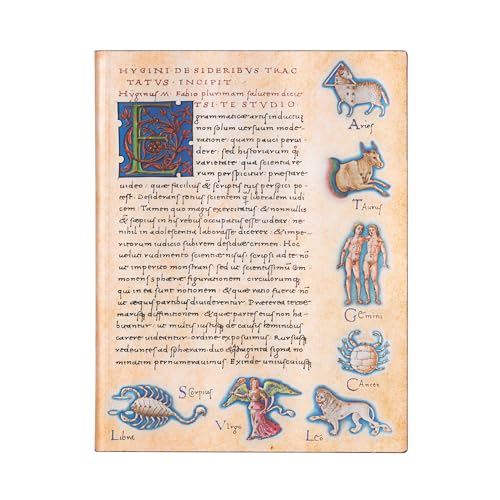 HYGINI DE SIDERIBVS TRAC
TATVS INCIPIT
Hyginus M. Fabio plurimam salutem dicit
ETSI TE STVDIO
grammaticæ artis inductũ
non solum uersuum mode-
ratione, quam pauci perui
dere, sed historiarum q̃
uarietate qua scientia re
rum perspicitur præstare
uideo quæ facilius & scriptis tuis perspici po
test. Desiderans potius scientem q̃ liberalem iudi
cem. Tamen quo magis exercitatus, & nonnullis
& sæpius in his rebus occupatus esse uidear. ne
nihil in adolescentia laborasse dicerer. & impe-
ritorum iudicio subirem desidiæ crimen. Hoc
ueluti rudimento scientiæ nisus scripsi ad te. nõ
ut imperito monstrans sed ut scientissimũ com
monens sphæræ figurationem circulorumq̃
qui in ea sunt notionem & quæ ratio fuerit nõ
ut æquis partibus diuiderentur. Præterea terræ
marisq̃ diffinitionem & quæ partes eius non ha
buantur ut multis iustisq̃ de causis hominibus
carere uideantur ordine exposuimus. Rursusq̃
redeuntes ad sphæram duo & quadraginta signa no
minatim pernumerauimus. Exinde uniuscuiusq̃
Aries
Taurus
Gemini
Cancer
Leo
Virgo
Scorpius
Libra